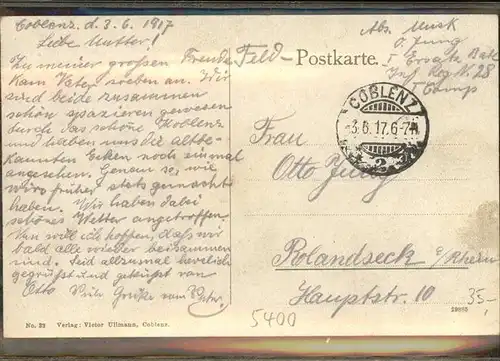 Coblenz. d. 3. 6. 1917
Liebe Mutter!
Zu meiner großen Freude
kam Vater soeben an. Wir
sind beide zusammen
schön spazieren gewesen
durch das schöne Koblenz
und haben uns die altbe-
kannten Ecken noch einmal
angesehen. Genau so, wie
wirs früher stets gemacht
haben. Wir haben dabei
schönes Wetter angetroffen
Nun will ich hoffen, daß wir
bald alle wieder beisammen
sind. Seid allzumal herzlich
gegrüßt und geküßt von
Otto Viele Grüße vom Vater.
Feld-Postkarte.
Abs. Musk
O. Jung
I Ersatz Batl
Inf. Reg N. 28
COBLENZ
3.6.17.6-7N.
2
Frau
Otto Jung
Rolandseck a/Rhein
Hauptstr. 10
35,-
5400
No. 22 Verlag: Victor Ullmann, Coblenz.